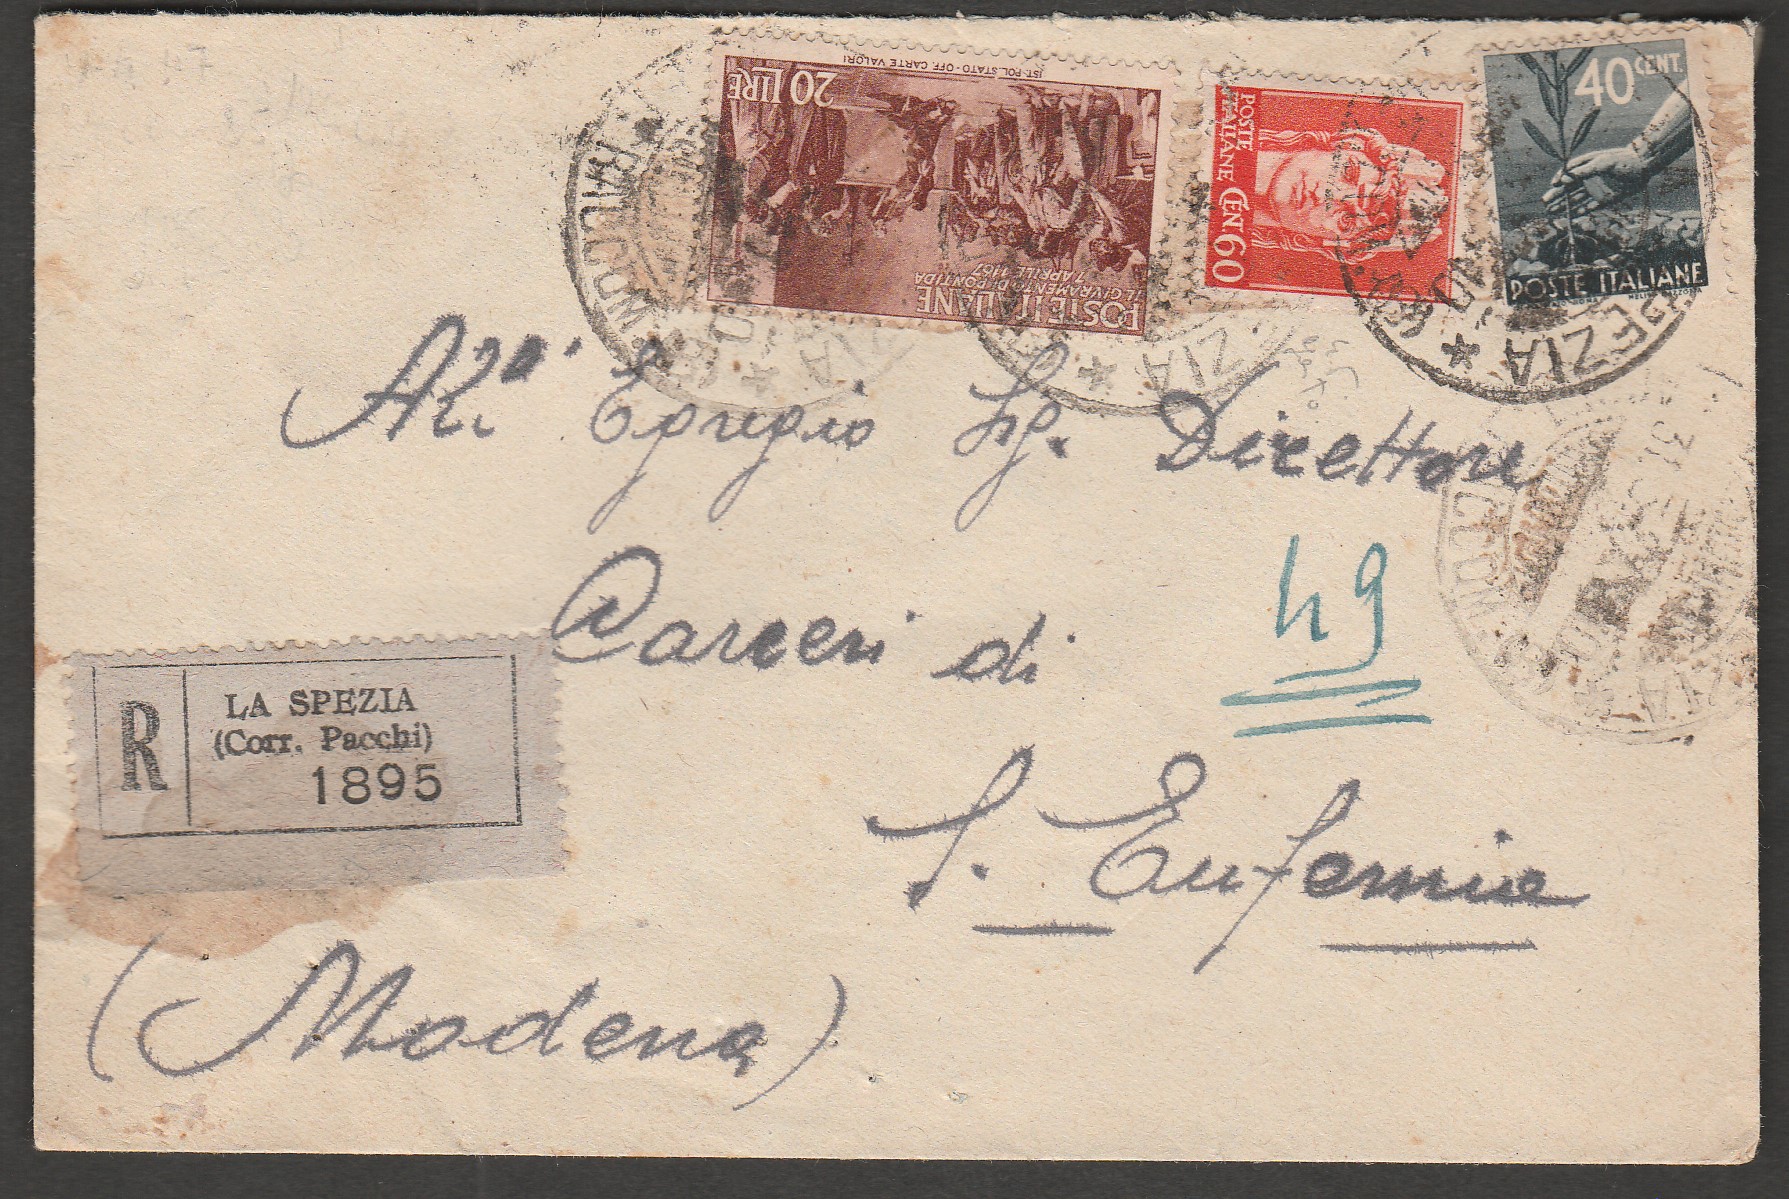 20 LIRE
IST. POL. STATO - OFF. CARTE VALORI
IL GIVRAMENTO DI PONTIDA
7 APRILE 1167
POSTE ITALIANE
POSTE
ITALIANE
CEN 60
40 CENT.
POSTE ITALIANE
All' Egregio Sig. Direttore
Carceri di
49
S. Eufemia
(Modena)
R
LA SPEZIA
(Corr. Pacchi)
1895